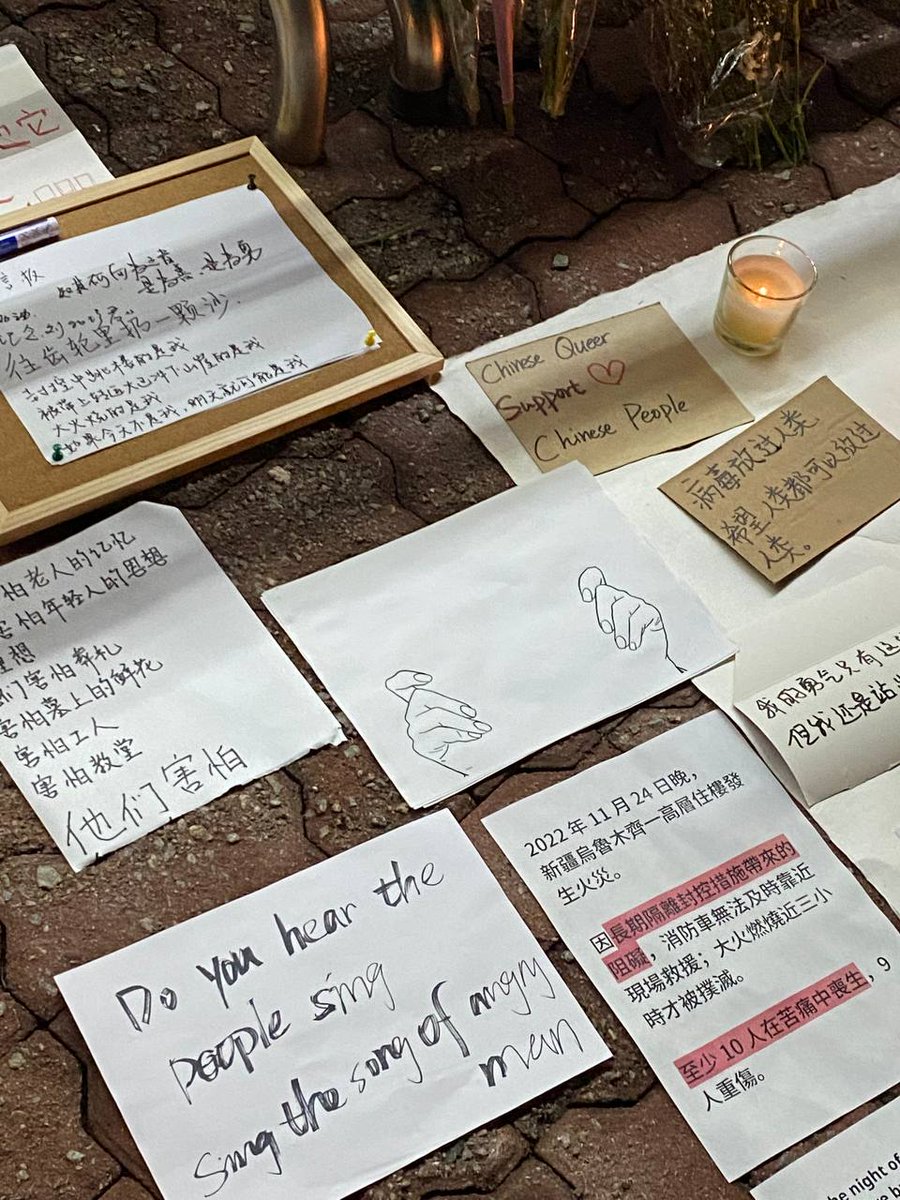 它
言板
是为勇
往齿轮里扔一颗沙.
封控中跳楼的是我
被带上转运大巴冲下山崖的是我
大火烧的是我
如果今天不是我,明天就可能是我
Chinese Queer
Support
Chinese People
病毒放过人类
希望人类都可以放过
人类。
怕老人的记忆
害怕年轻人的思想
理想
他们害怕葬礼
害怕墓上的鲜花
害怕工人
害怕教堂
他们害怕
我的勇气只有这
但我还是站
2022 年 11 月 24 日晚,
新疆烏魯木齊一高層住樓發
生火災。
因長期隔離封控措施帶來的
阻礙,消防車無法及時靠近
現場救援;大火燃燒近三小
時才被撲滅。
至少 10 人在苦痛中喪生,9
人重傷。
Do you hear the
people sing
sing the song of angry
man
the night of